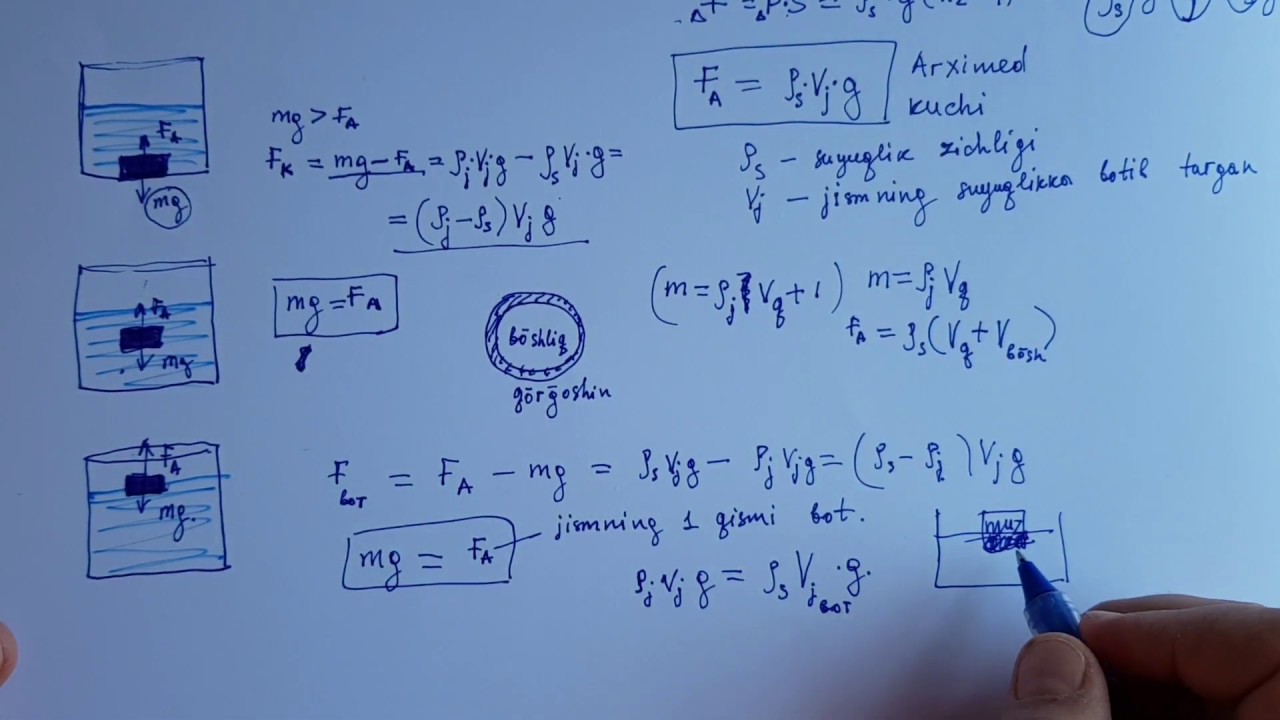 F_A = ρ_s·V_j·g
Arximed
kuchi
ρ_s – suyuqlik zichligi
V_j – jismning suyuqlikka botib turgan
F_A
mg
mg > F_A
F_K = mg – F_A = ρ_j·V_j g – ρ_s V_j·g =
= (ρ_j – ρ_s) V_j g
F_A
mg
mg = F_A
bōshliq
qōrḡoshin
m = ρ_j V_q
F_A = ρ_s (V_q + V_bōsh)
F_A
mg.
F_вот = F_A – mg = ρ_s V_j g – ρ_j V_j g = (ρ_s – ρ_j) V_j g
mg = F_A – jismning 1 qismi bot.
ρ_j V_j g = ρ_s V_j вот · g.
muz